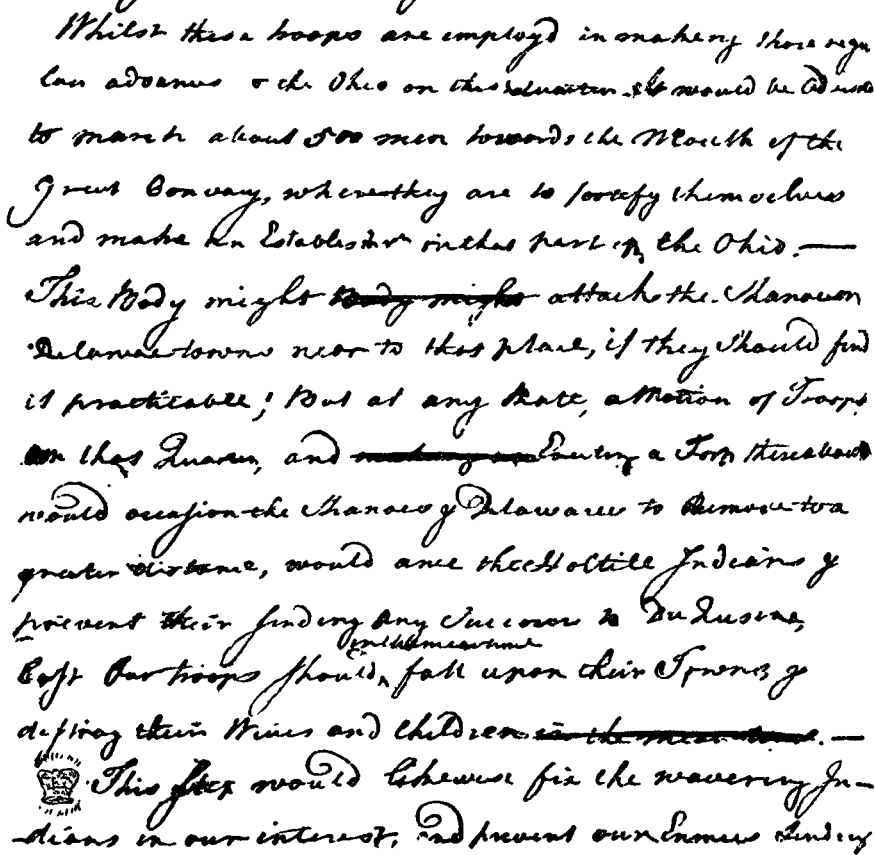 Whilst these troops are employ'd in making those regu
lar advances to the Ohio on this Quarter. It would be Advised
to march about 500 men towards the Mouth of the
Great Conway, where they are to fortify themselves
and make an Establishmt in that part of the Ohio. —
This Body might Body might attack the Shanaeon
Delaware towns near to this place, if they Should find
it practicable; But at any Rate, a Motion of Troops
in that Quarter, and making an Erecting a Fort thereabouts
would occasion the Shanaes & Delawares to Remove to a
greater distance, would awe the Hostile Indians &
prevent their sending Any Succours to Du Quesne,
Lest Our troops should, in the mean time fall upon their Towns &
destroy their Wives and Children in the mean time. —
This Step would likewise fix the wavering In-
dians in our interest, And prevent our Enemies Sending